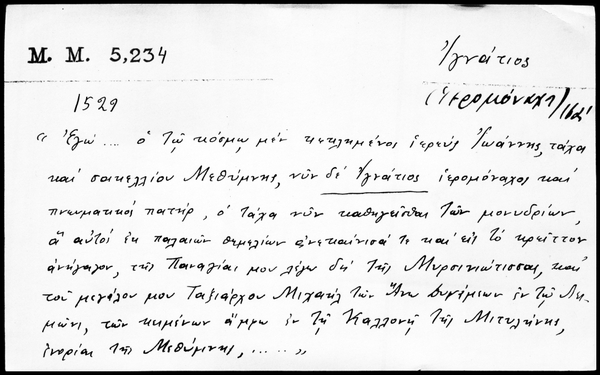 M. M. 5,234
Ἰγνάτιος
(Ἱερομόναχος)
1529
« Ἐγώ .... ὁ τῷ κόσμῳ μὲν κεκλημένος ἱερεὺς Ἰωάννης, τάχα
καὶ σακελλίου Μεθύμνης, νῦν δὲ Ἰγνάτιος ἱερομόναχος καὶ
πνευματικὸς πατήρ, ὁ τάχα νῦν καθηγεῖσθαι τῶν μονυδρίων,
ἃ αὐτὸς ἐκ παλαιῶν θεμελίων ἀνεκαίνισά τε καὶ εἰς τὸ κρεῖττον
ἀνήγαγον, τῆς Παναγίας μου λέγω δὴ τῆς Μυρσινιωτίσσας, καὶ
τοῦ μεγάλου μου Ταξιάρχου Μιχαὴλ τῶν Ἄνω δυνάμεων ἐν τῷ Λει-
μῶνι, τῶν κειμένων ἄμφω ἐν τῇ Καλλονῇ τῆς Μιτυλήνης,
ἐνορίας τῆς Μεθύμνης, ..... »